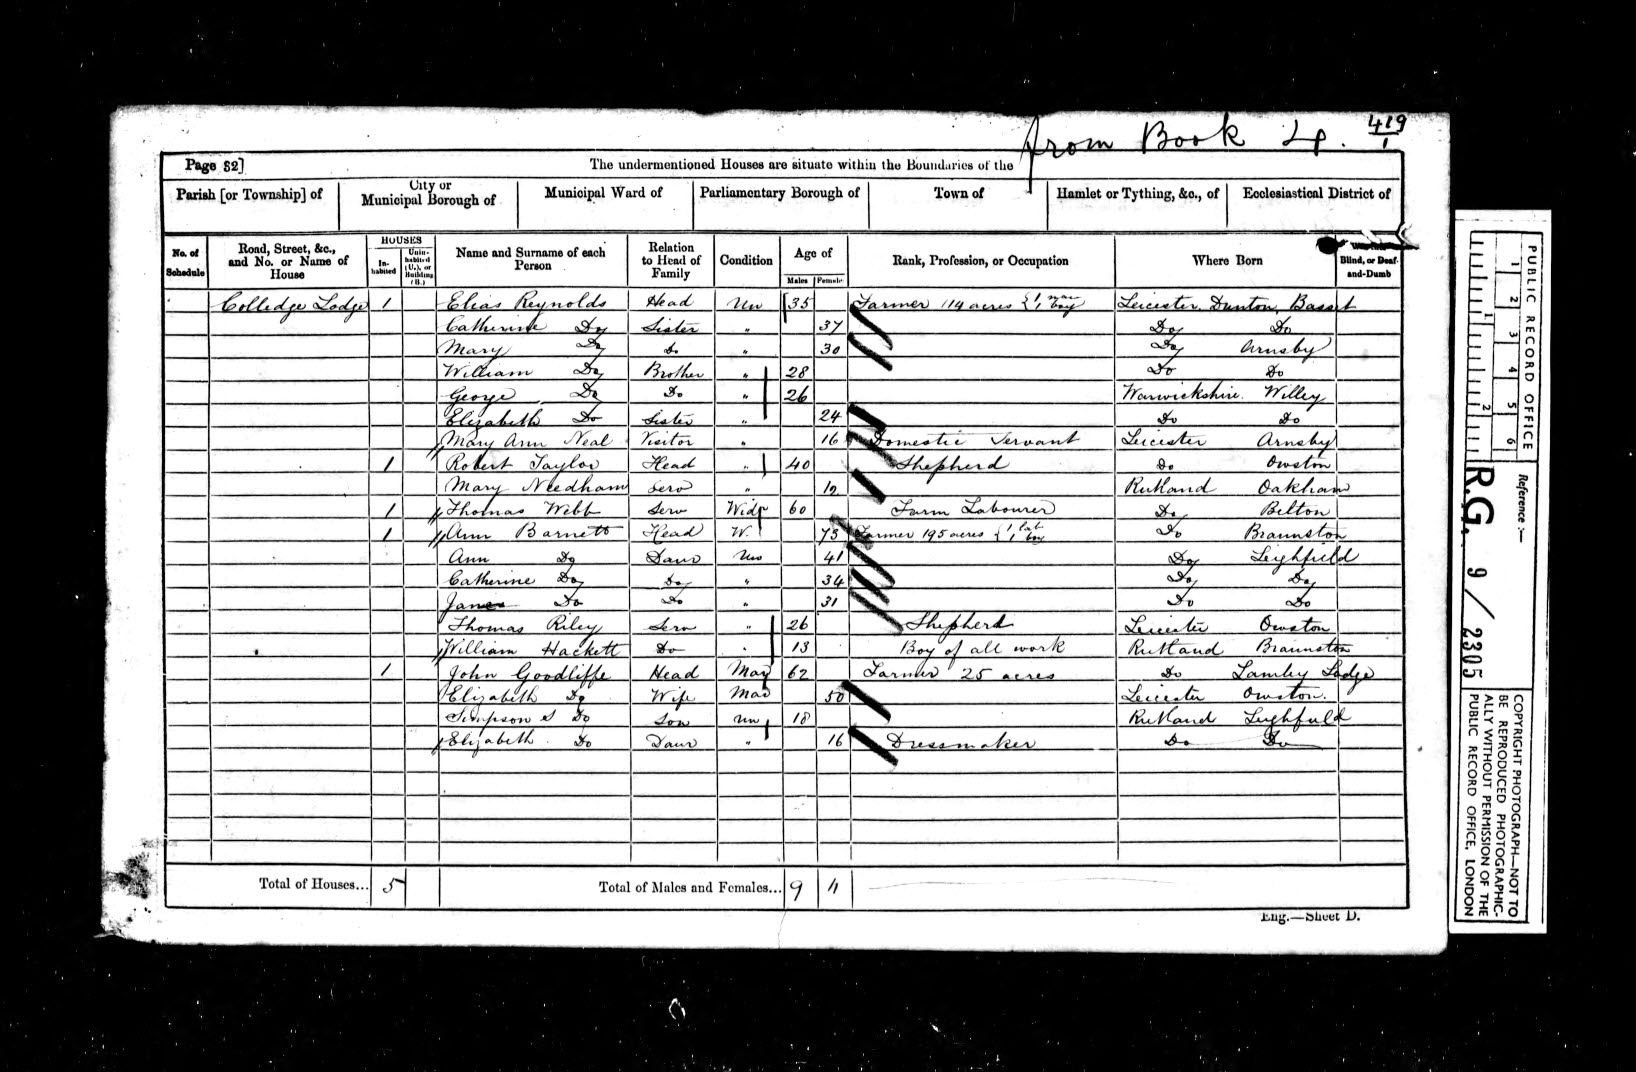 from Book 4. 419
1
Page 32]
The undermentioned Houses are situate within the Boundaries of the
Parish [or Township] of City or Municipal Borough of Municipal Ward of Parliamentary Borough of Town of Hamlet or Tything, &c., of Ecclesiastical District of
No. of Schedule Road, Street, &c., and No. or Name of House HOUSES Inhabited Uninhabited (U.), or Building (B.) Name and Surname of each Person Relation to Head of Family Condition Age of Males Females Rank, Profession, or Occupation Where Born Blind, or Deaf-and-Dumb
Colledge Lodge 1 Elias Reynolds Head Un 35 Farmer 114 acres { 1 man 1 boy Leicester. Dunton Basset
Catherine Do Sister " 37 Do Do
Mary Do Do " 30 Do Arnsby
William Do Brother " 28 Do Do
George Do Do " 26 Warwickshire. Willey
Elizabeth Do Sister " 24 Do Do
Mary Ann Neal Visitor " 16 Domestic Servant Leicester Arnsby
1 Robert Taylor Head " 40 Shepherd Do Owston
Mary Needham Serv " 12 Rutland Oakham
1 Thomas Webb Serv Widr 60 Farm Labourer Do Belton
1 Ann Barnett Head W. 73 Farmer 195 acres { 1 lab 1 boy Do Braunston
Ann Do Daur Un 41 Do Leighfield
Catherine Do Do " 34 Do Do
Jane Do Do " 31 Do Do
Thomas Riley Serv " 26 Shepherd Leicester Owston
William Hackett Do " 13 Boy of all work Rutland Braunston
1 John Goodliffe Head Mar 62 Farmer 25 acres Do Lambley Lodge
Elizabeth Do Wife Mar 50 Leicester Owston.
Simpson S Do Son Un 18 Rutland Leighfield
Elizabeth Do Daur " 16 Dressmaker Do Do
Total of Houses... 5 Total of Males and Females... 9 11
Eng.—Sheet D.
PUBLIC RECORD OFFICE
1 2 3 4 5 6
1 2
Reference :—
R.G. 9/2305
COPYRIGHT PHOTOGRAPH—NOT TO
BE REPRODUCED PHOTOGRAPHIC-
ALLY WITHOUT PERMISSION OF THE
PUBLIC RECORD OFFICE, LONDON